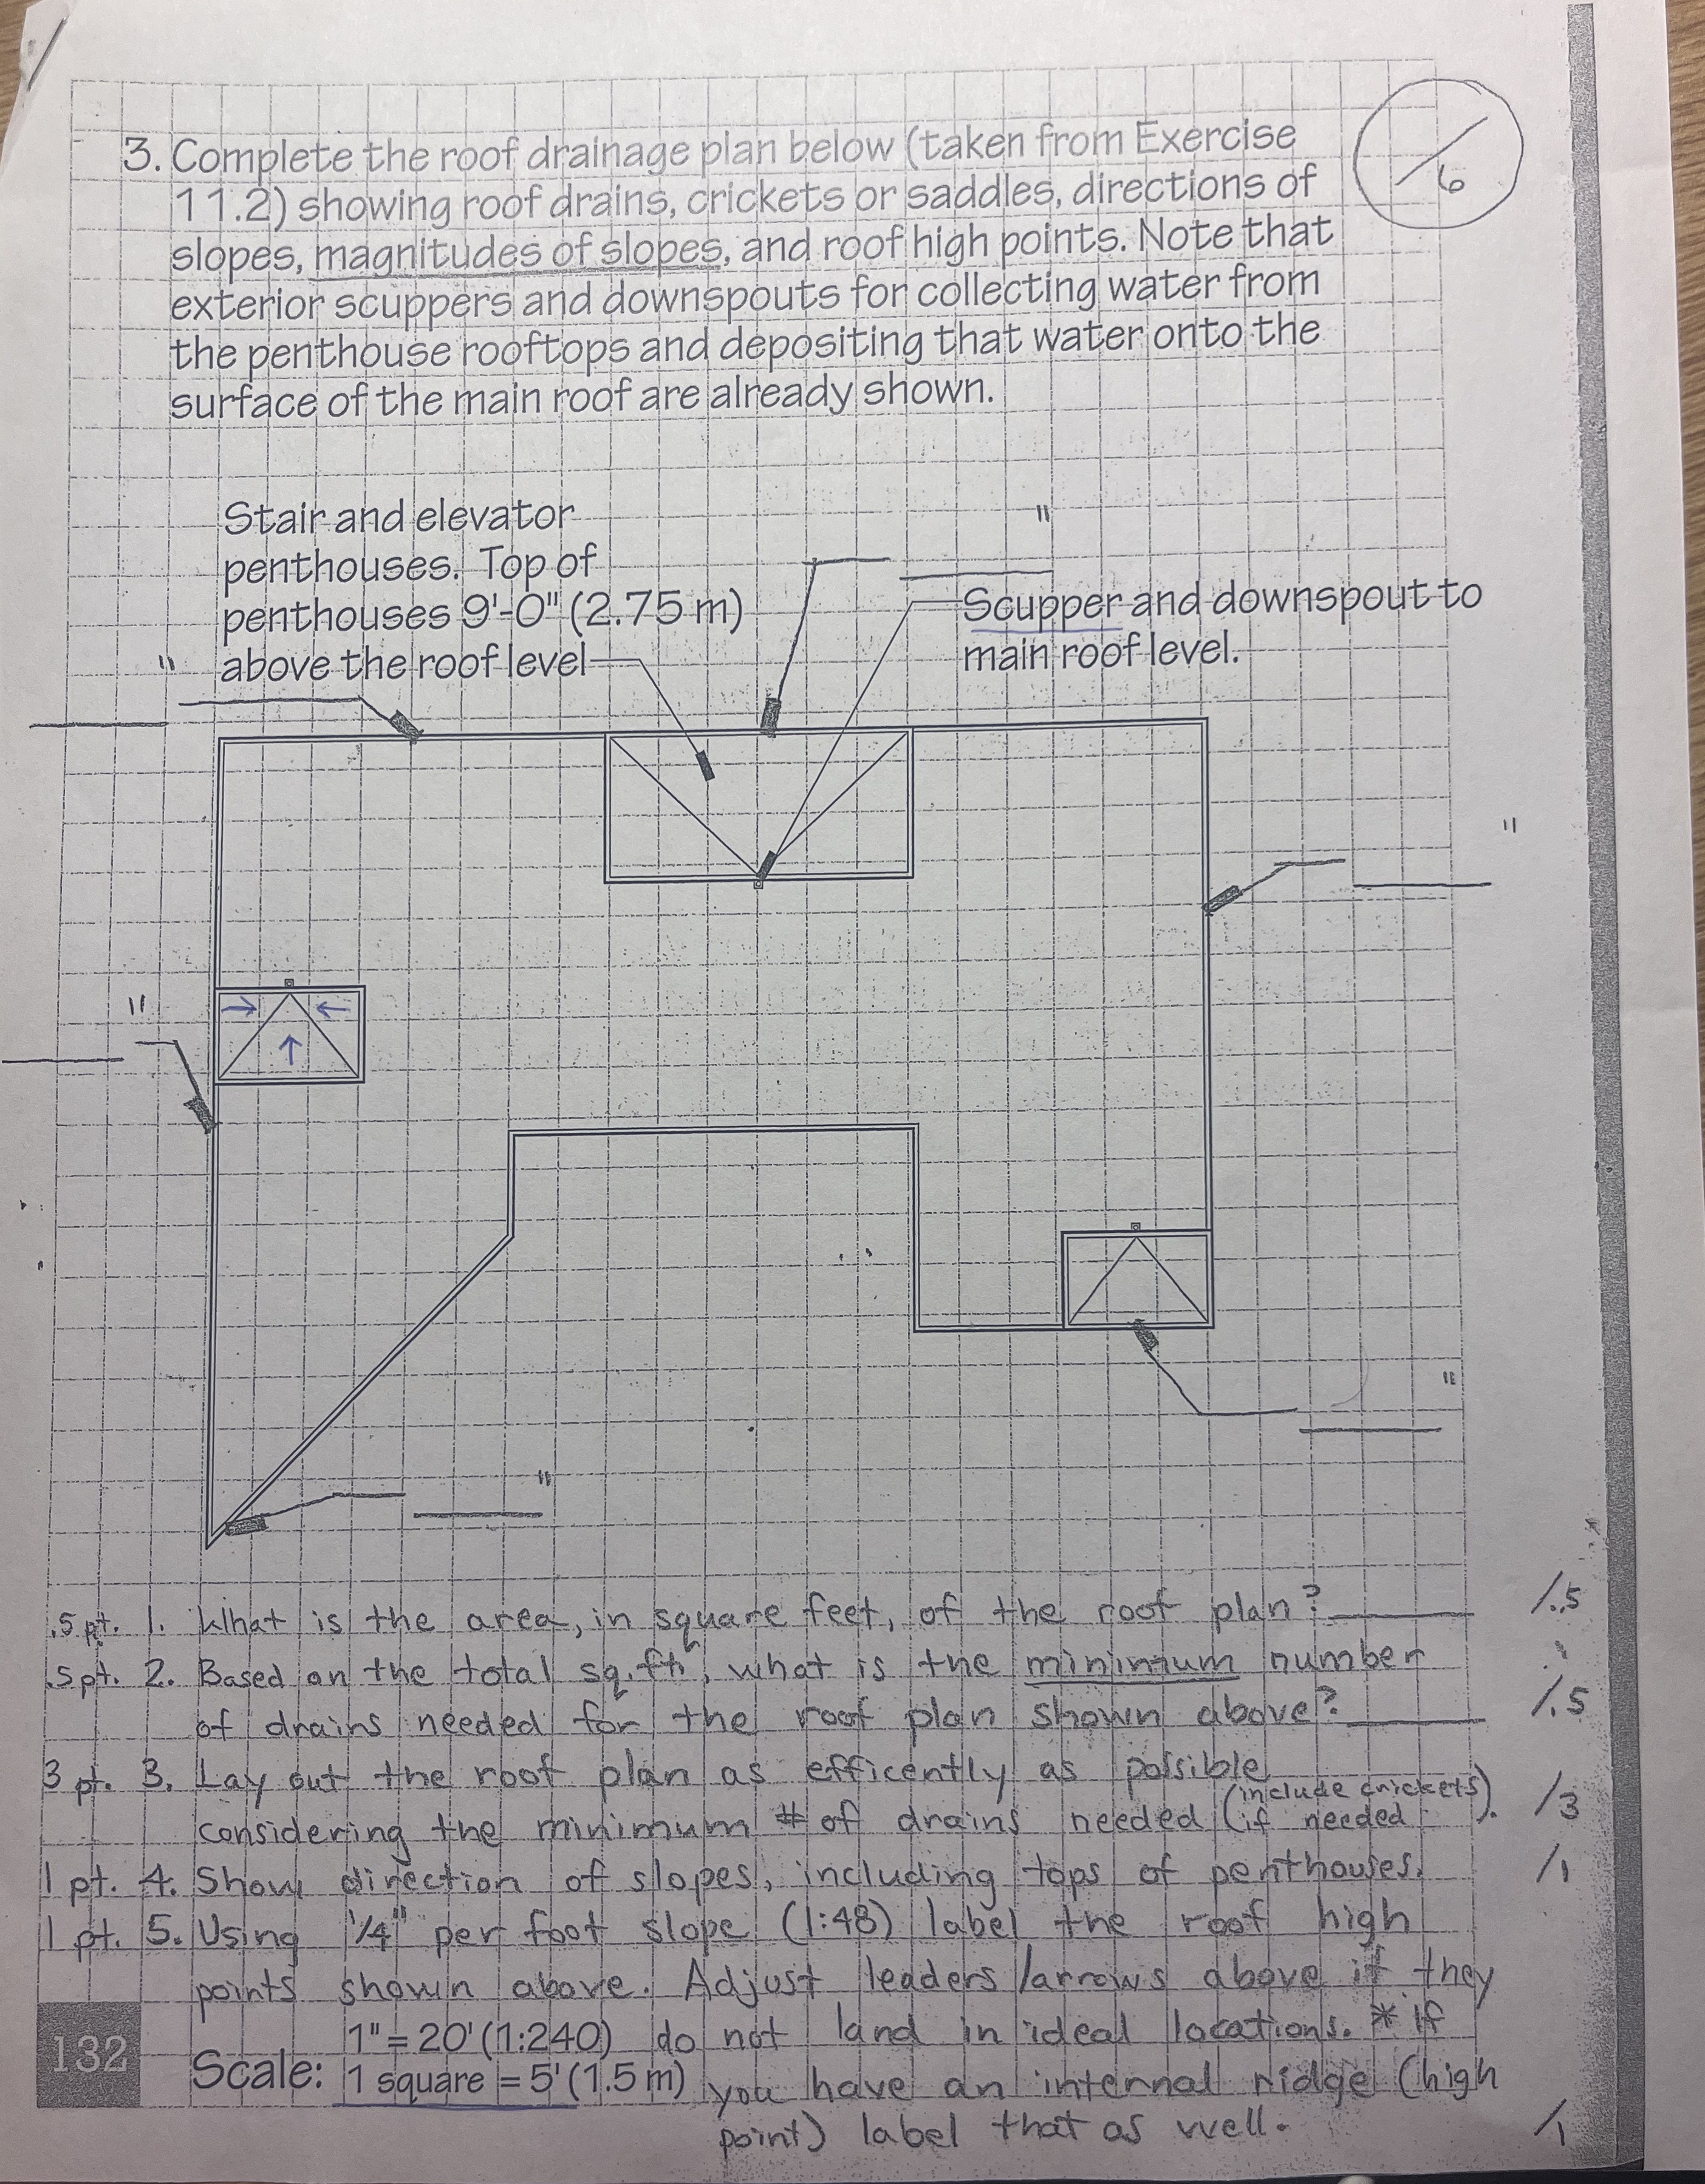 3. Complete the roof drainage plan below (taken from Exercise
11.2) showing roof drains, crickets or saddles, directions of
slopes, magnitudes of slopes, and roof high points. Note that
exterior scuppers and downspouts for collecting water from
the penthouse rooftops and depositing that water onto the
surface of the main roof are already shown.
/6
Stair and elevator
penthouses. Top of
penthouses 9'-0" (2.75 m)
above the roof level
"
"
Scupper and downspout to
main roof level.
"
"
"
"
.5 pt. 1. What is the area, in square feet, of the roof plan? /.5
.5 pt. 2. Based on the total sq. ft., what is the minimum number
of drains needed for the roof plan shown above? /.5
3 pt. 3. Lay out the roof plan as efficently as possible
considering the minimum # of drains needed (include crickets if needed). /3
1 pt. 4. Show direction of slopes, including tops of penthouses. /1
1 pt. 5. Using 1/4" per foot slope (1:48) label the roof high
points shown above. Adjust leaders/arrows above if they
do not land in ideal locations. * if
you have an internal ridge (high
point) label that as well. /1
132
Scale: 1" = 20' (1:240)
1 square = 5' (1.5 m)